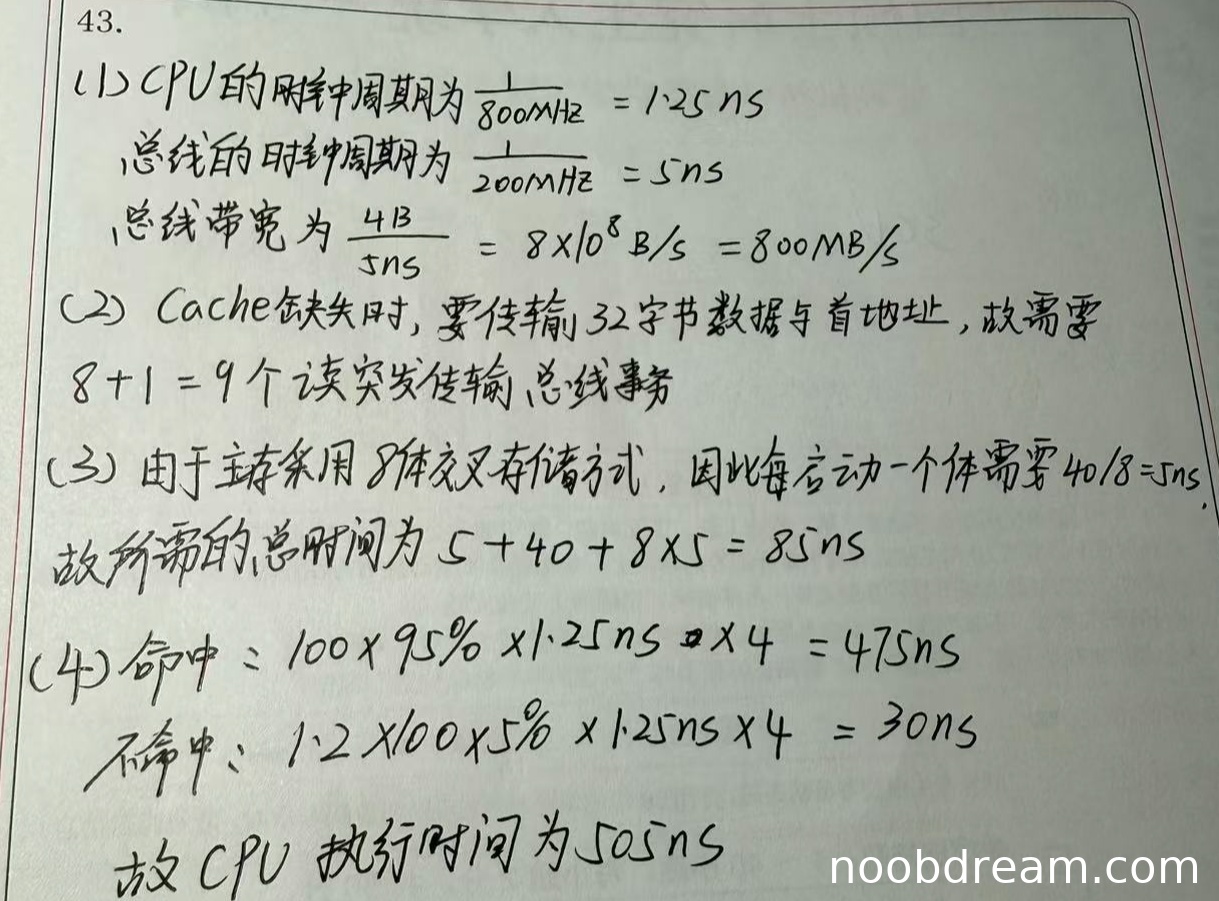 43.
(1) CPU的时钟周期为 1/800MHz = 1.25ns
总线的时钟周期为 1/200MHz = 5ns
总线带宽为 4B/5ns = 8×10⁸B/s = 800MB/s
(2) Cache缺失时,要传输32字节数据与首地址,故需要
8+1=9个读突发传输总线事务
(3) 由于主存采用8体交叉存储方式,因此每启动一个体需要40/8=5ns,
故所需的总时间为 5+40+8×5=85ns
(4) 命中: 100×95%×1.25ns×4=475ns
不命中: 1.2×100×5%×1.25ns×4=30ns
故CPU执行时间为505ns
noobdream.com